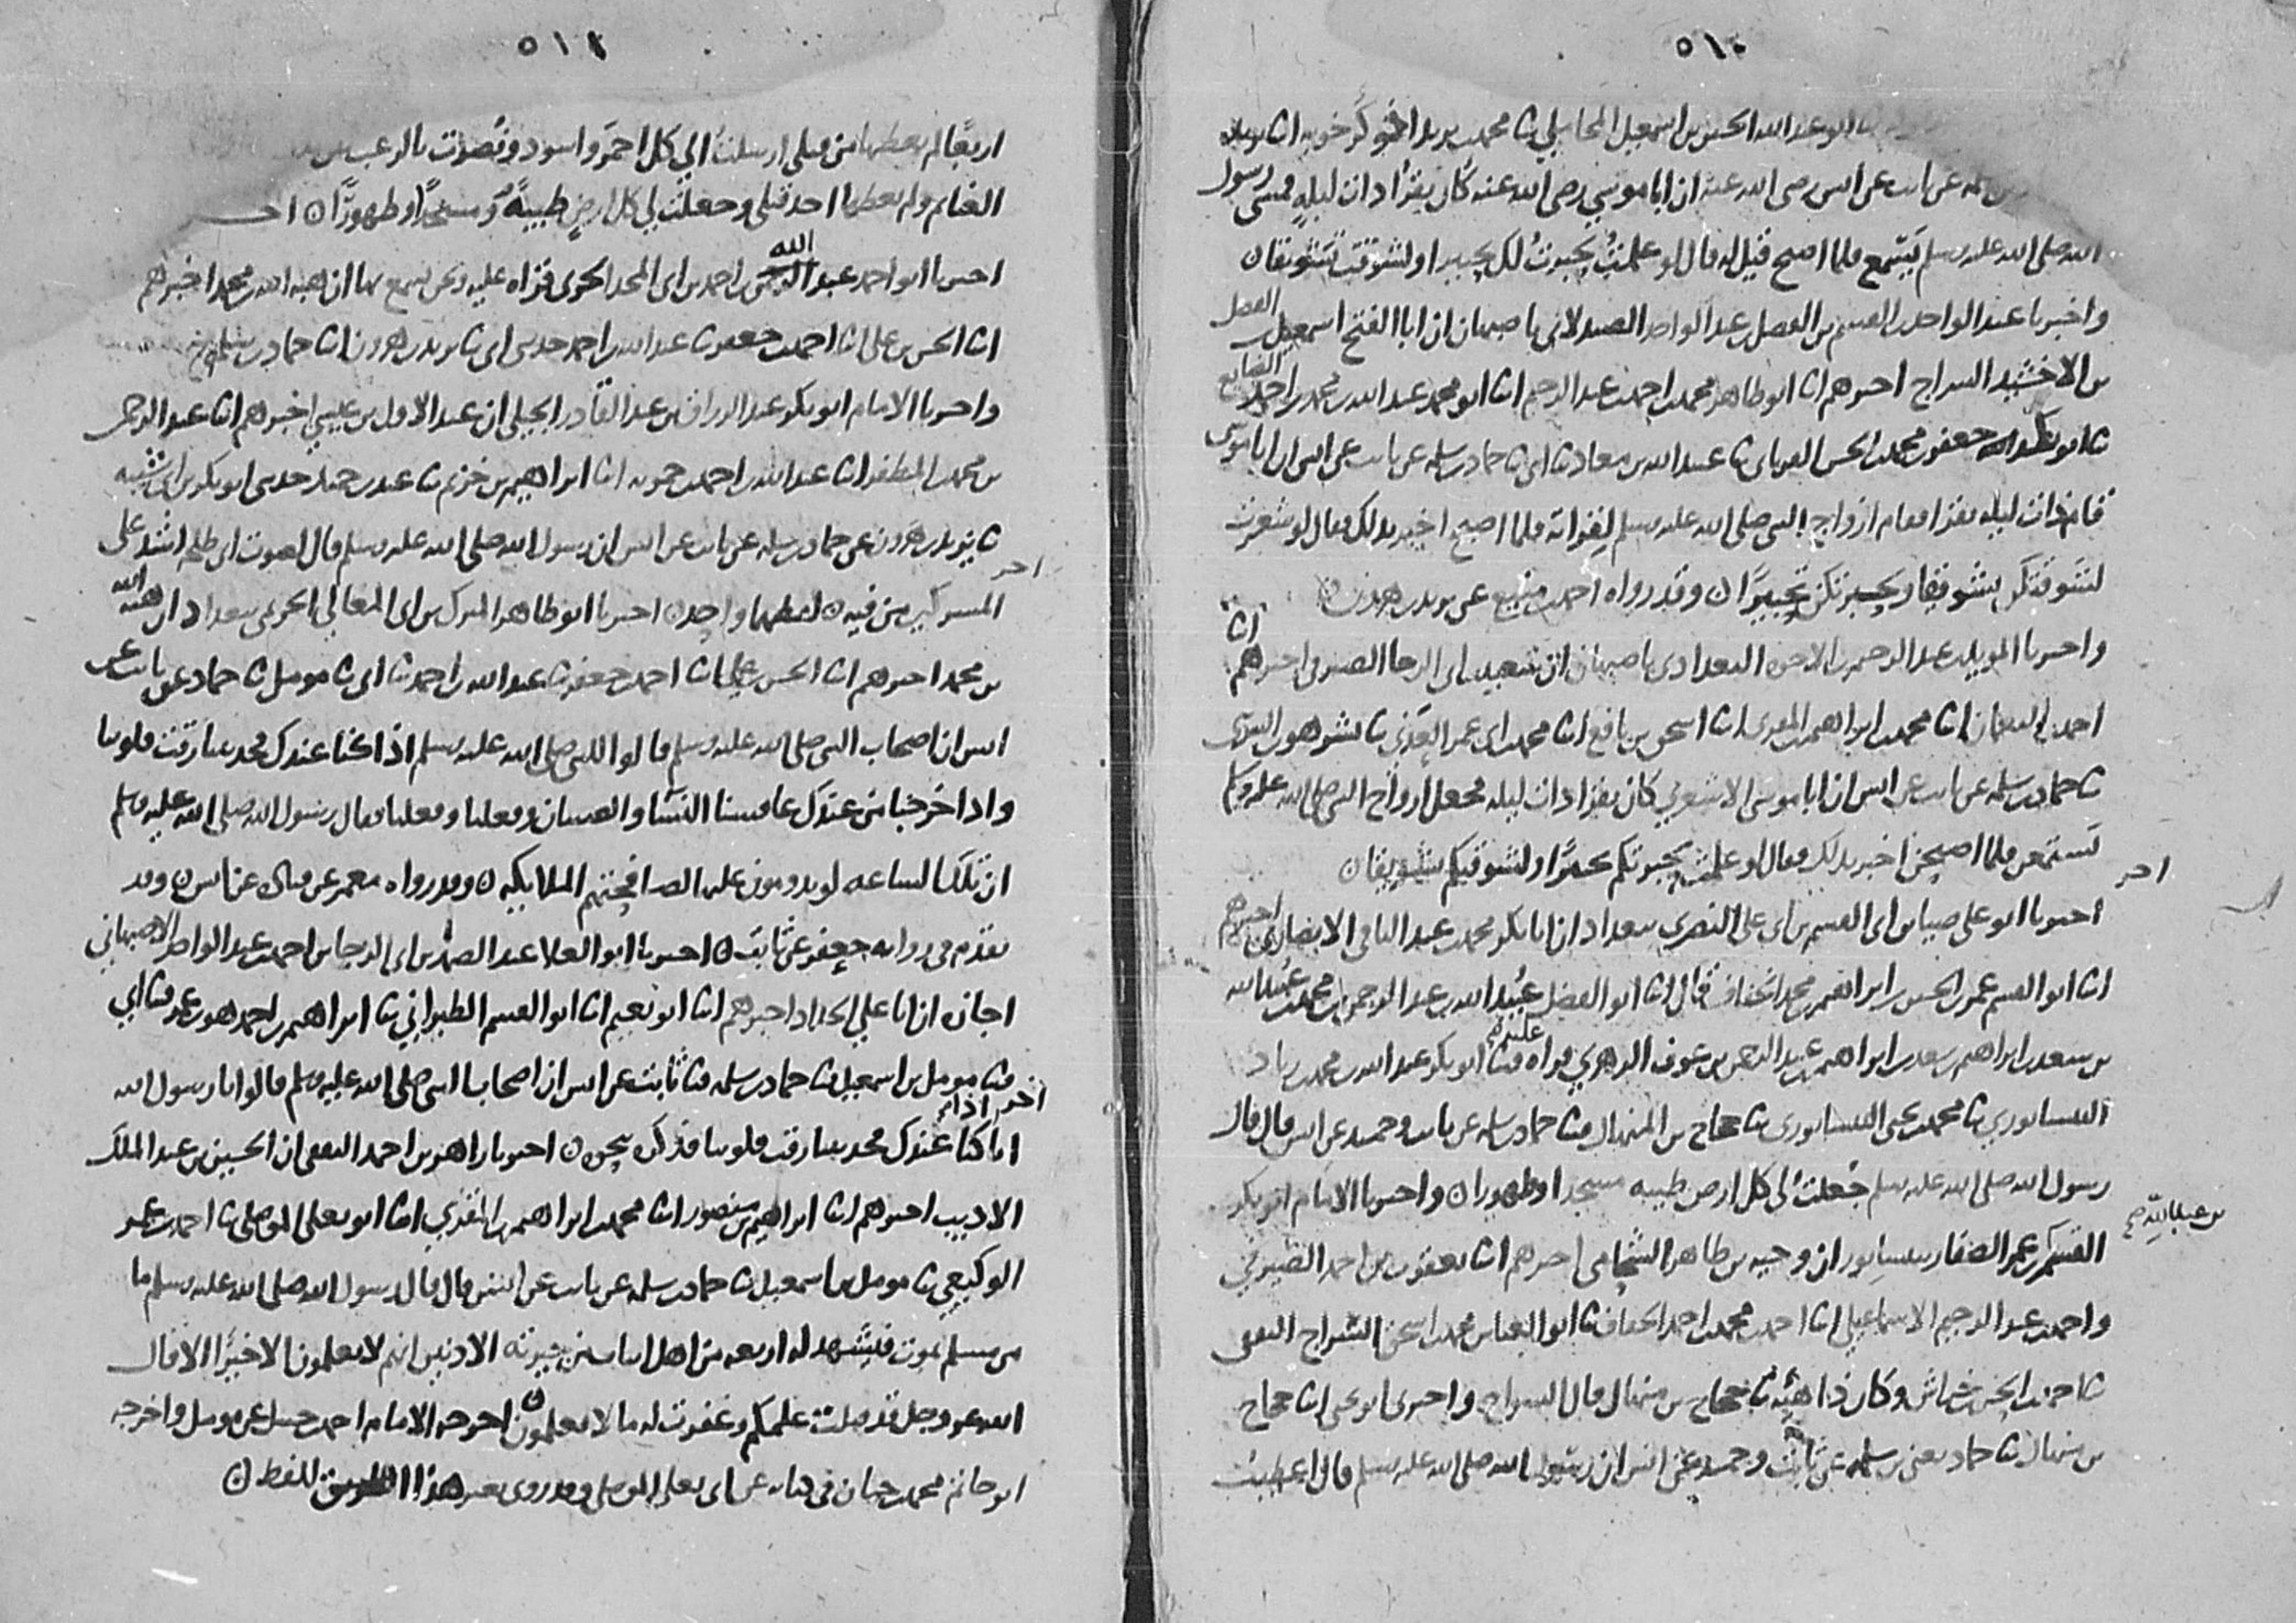 ٥١٠
ابو عبد الله الحسين بن اسمعيل المحاملي ثنا محمد بن يزيد اخو كرخويه انا يزيد
عن ثابت عن انس رضي الله عنه ان ابا موسي رضي الله عنه كان يقرأ ذات ليلة رسول
الله صلى الله عليه وسلم يتسمع فلما اصبح قيل له قال لو علمت لحبرت لكم تحبيرا او لشوقت تشويقا ن
واخبرنا عبد الواحد بن القسم بن الفضل بن عبد الواحد الصيدلاني باصبهان ان ابا الفتح اسمعيل بن الفضل
بن الاخشيد السراج اخبرهم انا ابو طاهر محمد بن احمد بن عبد الرحيم انا ابو محمد عبد الله بن محمد بن احمد الصايغ
ثنا ابو بكر جعفر بن محمد بن الحسن الفريابي ثنا عبيد الله بن معاذ ثنا ابي ثنا حماد بن سلمه عن ثابت عن انس ان ابا موسى
قام ذات ليله يقرا فقام ازواج النبي صلى الله عليه وسلم لقراته فلما اصبح اخبر بذلك فقال لو شعرت
لشوقتكن تشويقا وحبرتكن تحبيرا ن وقد رواه احمد بن منيع عن يزيد بن هرون ن
واخبرنا المويد بن عبد الرحيم بن الاخوه البغدادي باصبهان ان سعيد بن ابي الرجا الصيرفي اخبرهم انا
احمد بن النعمان انا محمد بن ابراهيم بن المقرى انا اسحق بن نافع انا محمد بن ابي عمر العدني ثنا بشر هو بن السرى
ثنا حماد بن سلمه عن ثابت عن انس ان ابا موسى الاشعري كان يقرا ذات ليله فجعل ازواج النبي صلى الله عليه وسلم
تستمعن فلما اصبحن اخبر بذلك فقال لو علمت لحبرتكم تحبيرا ولشوقتكم تشويقا ن
اخر
اخبرنا ابو علي ضيا بن ابي القسم بن ابي على ببغداد ان ابا بكر محمد بن عبد الباقي الانصاري اخبرهم
انا ابو القسم عمر بن الحسين بن ابراهيم بن محمد الخفاف قال انا ابو الفضل عبيد الله بن عبد الرحمن بن محمد بن عبيد الله
بن سعد بن ابراهيم بن سعد بن ابراهيم بن عبد الرحمن بن عوف الزهري قراه عليه ثنا ابو بكر عبد الله بن محمد بن زياد
النيسابوري ثنا محمد بن يحيى النيسابورى ثنا حجاج بن المنهال ثنا حماد بن سلمه عن ثابت وحميد عن انس قال قال
رسول الله صلى الله عليه وسلم جعلت لي كل ارض طيبه مسجدا وطهورا ن واخبرنا الامام ابو بكر
القسم بن عبد الله بن عمر الصفار بنيسابور ان وجيه بن طاهر الشحامي اخبرهم انا يعقوب بن احمد الصيرفي
واحمد بن عبد الرحيم الاسماعيلي انا احمد بن محمد بن احمد الخفاف ثنا ابو العباس محمد بن اسحق السراج الثقفي
ثنا احمد بن الحسن بن خراش وكان ذا هيئة ثنا حجاج بن منهال قال السراج واخبرنى ابو يحيى انا حجاج
بن منهال ثنا حماد يعني بن سلمه عن ثابت وحميد عن انس ان رسول الله صلى الله عليه وسلم قال اعطيت
٥١١
اربعا لم يعطها من قبلي ارسلت الي كل احمر واسود ونصرت بالرعب
الغنايم ولم يعطها احد قبلي وجعلت لي كل ارض طيبة مسجدا وطهورا ن
اخبرنا ابو احمد عبد الله بن احمد بن ابي المجد الحربي قراه عليه ونحن نسمع بها ان هبة الله بن محمد اخبرهم
انا الحسن بن علي انا احمد بن جعفر ثنا عبد الله بن احمد حدثني ابي ثنا يزيد بن هرون انا حماد بن سلمه
واخبرنا الامام ابو بكر عبد الرزاق بن عبد القادر الجيلي ان عبد الاول بن عيسي اخبرهم انا عبد الرحمن
بن محمد بن المظفر انا عبد الله بن احمد بن حمويه انا ابراهيم بن خزيم ثنا عبد بن حميد حدثني ابو بكر بن ابي شيبه
ثنا يزيد بن هرون عن حماد بن سلمه عن ثابت عن انس ان رسول الله صلى الله عليه وسلم قال لصوت ابي طلحه اشد على
المشركين من فيه ن لفظهما واحد ن
اخر
اخبرنا ابو طاهر المبرك بن ابي المعالي الحريمي ببغداد ان هبة الله
بن محمد اخبرهم انا الحسن بن علي انا احمد بن جعفر ثنا عبد الله بن احمد ثنا ابي ثنا مومل ثنا حماد عن ثابت عن
انس ان اصحاب النبي صلى الله عليه وسلم قالوا للنبي صلى الله عليه وسلم اذا كنا عندك فحدثتنا رقت قلوبنا
واذا خرجنا من عندك عافسنا النسا والصبيان وفعلنا وفعلنا فقال رسول الله صلى الله عليه وسلم
ان تلك الساعه لو تدومون عليها لصافحتكم الملايكه ن وقد رواه معمر عن قتاده عن انس ن وقد
تقدم في روايه جعفر عن ثابت ن اخبرنا ابو العلا عبد الصمد بن ابي الرجا بن احمد بن عبد الواحد الاصبهاني
اجازه ان ابا علي الحداد اخبرهم انا ابو نعيم انا ابو القسم الطبراني ثنا ابراهيم بن احمد بن عمر ثنا ابي
ثنا مومل بن اسمعيل ثنا حماد بن سلمه ثنا ثابت عن انس ان اصحاب النبي صلى الله عليه وسلم قالوا يا رسول الله
انا اذا كنا عندك فحدثتنا رقت قلوبنا فذكره بنحوه ن
اخر
اخبرنا زاهر بن احمد الثقفي ان الحسين بن عبد الملك
الاديب اخبرهم انا ابراهيم بن منصور انا محمد بن ابراهيم بن المقري انا ابو يعلى الموصلي ثنا احمد بن عمر
الوكيعي ثنا مومل بن اسمعيل ثنا حماد بن سلمه عن ثابت عن انس قال قال رسول الله صلى الله عليه وسلم ما
من مسلم يموت فيشهد له اربعه من اهل ابيات من جيرته الادنين انهم لا يعلمون الا خيرا الا قال
الله عز وجل قد قبلت علمكم وغفرت له ما لا تعلمون ن اخرجه الامام احمد بن حنبل عن مومل واخرجه
ابو حاتم محمد بن حبان في كتابه عن ابي يعلى الموصلي وقد روى بغير هذا اللفظ ن